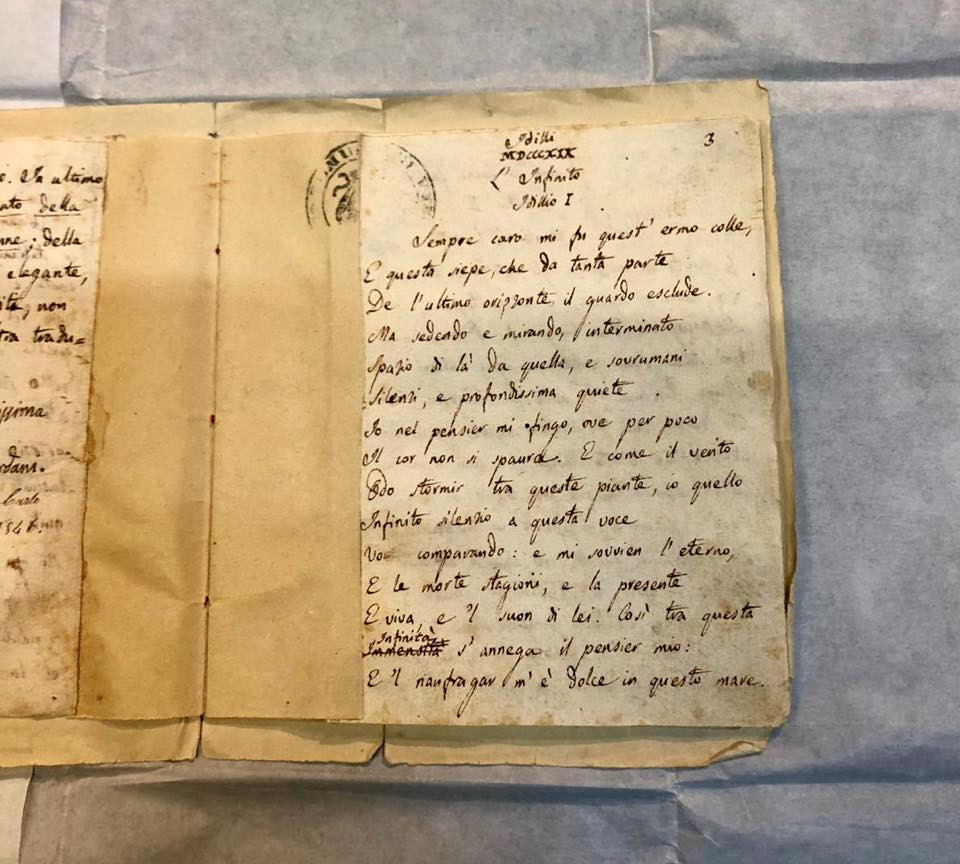 In ultimo
della
della
elegante,
non
Carlo
3
Idilli
MDCCCXIX
L' Infinito
Idillio I
Sempre caro mi fu quest' ermo colle,
E questa siepe, che da tanta parte
De l'ultimo orizzonte il guardo esclude.
Ma sedendo e mirando, interminato
Spazio di là da quella, e sovrumani
Silenzi, e profondissima quiete
Io nel pensier mi fingo, ove per poco
Il cor non si spaura. E come il vento
Odo stormir tra queste piante, io quello
Infinito silenzio a questa voce
Vo comparando: e mi sovvien l' eterno,
E le morte stagioni, e la presente
E viva, e 'l suon di lei. Così tra questa
Infinità
Immensità s' annega il pensier mio:
E 'l naufragar m' è dolce in questo mare.